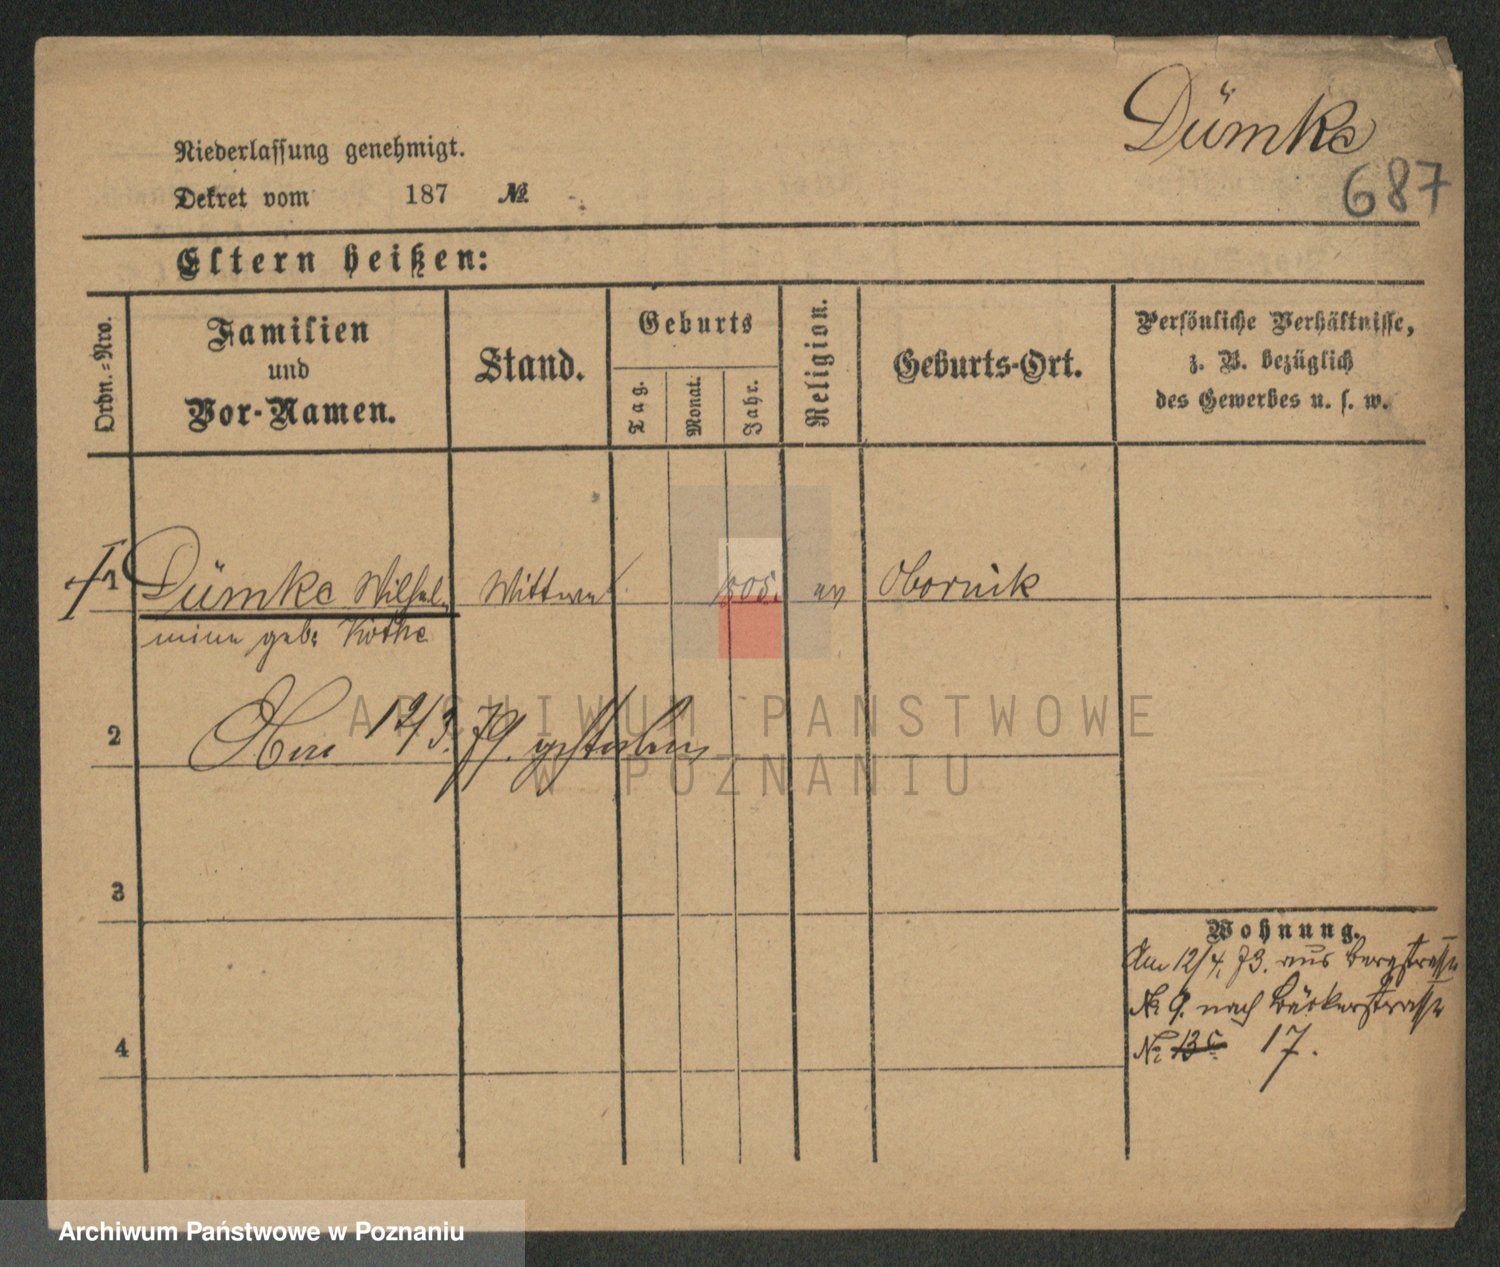 Dümke
687
Niederlassung genehmigt.
Dekret vom 187 №
Eltern heißen:
Ordn.-Nro.
Familien
und
Vor-Namen.
Stand.
Geburts
Tag.
Monat.
Jahr.
Religion.
Geburts-Ort.
Persönliche Verhältnisse,
z. B. bezüglich
des Gewerbes u. s. w.
1 Dümke Wilhel- Wittwe 1805. ev Obornik
mine geb: Köthe
2
12/3. 79. gestorben
3
4
Wohnung.
Am 12/4. 73. aus Bergstrasse
No 9. nach Bäckerstrasse
No 13 c 17.
ARCHIWUM PANSTWOWE
W POZNANIU
Archiwum Państwowe w Poznaniu